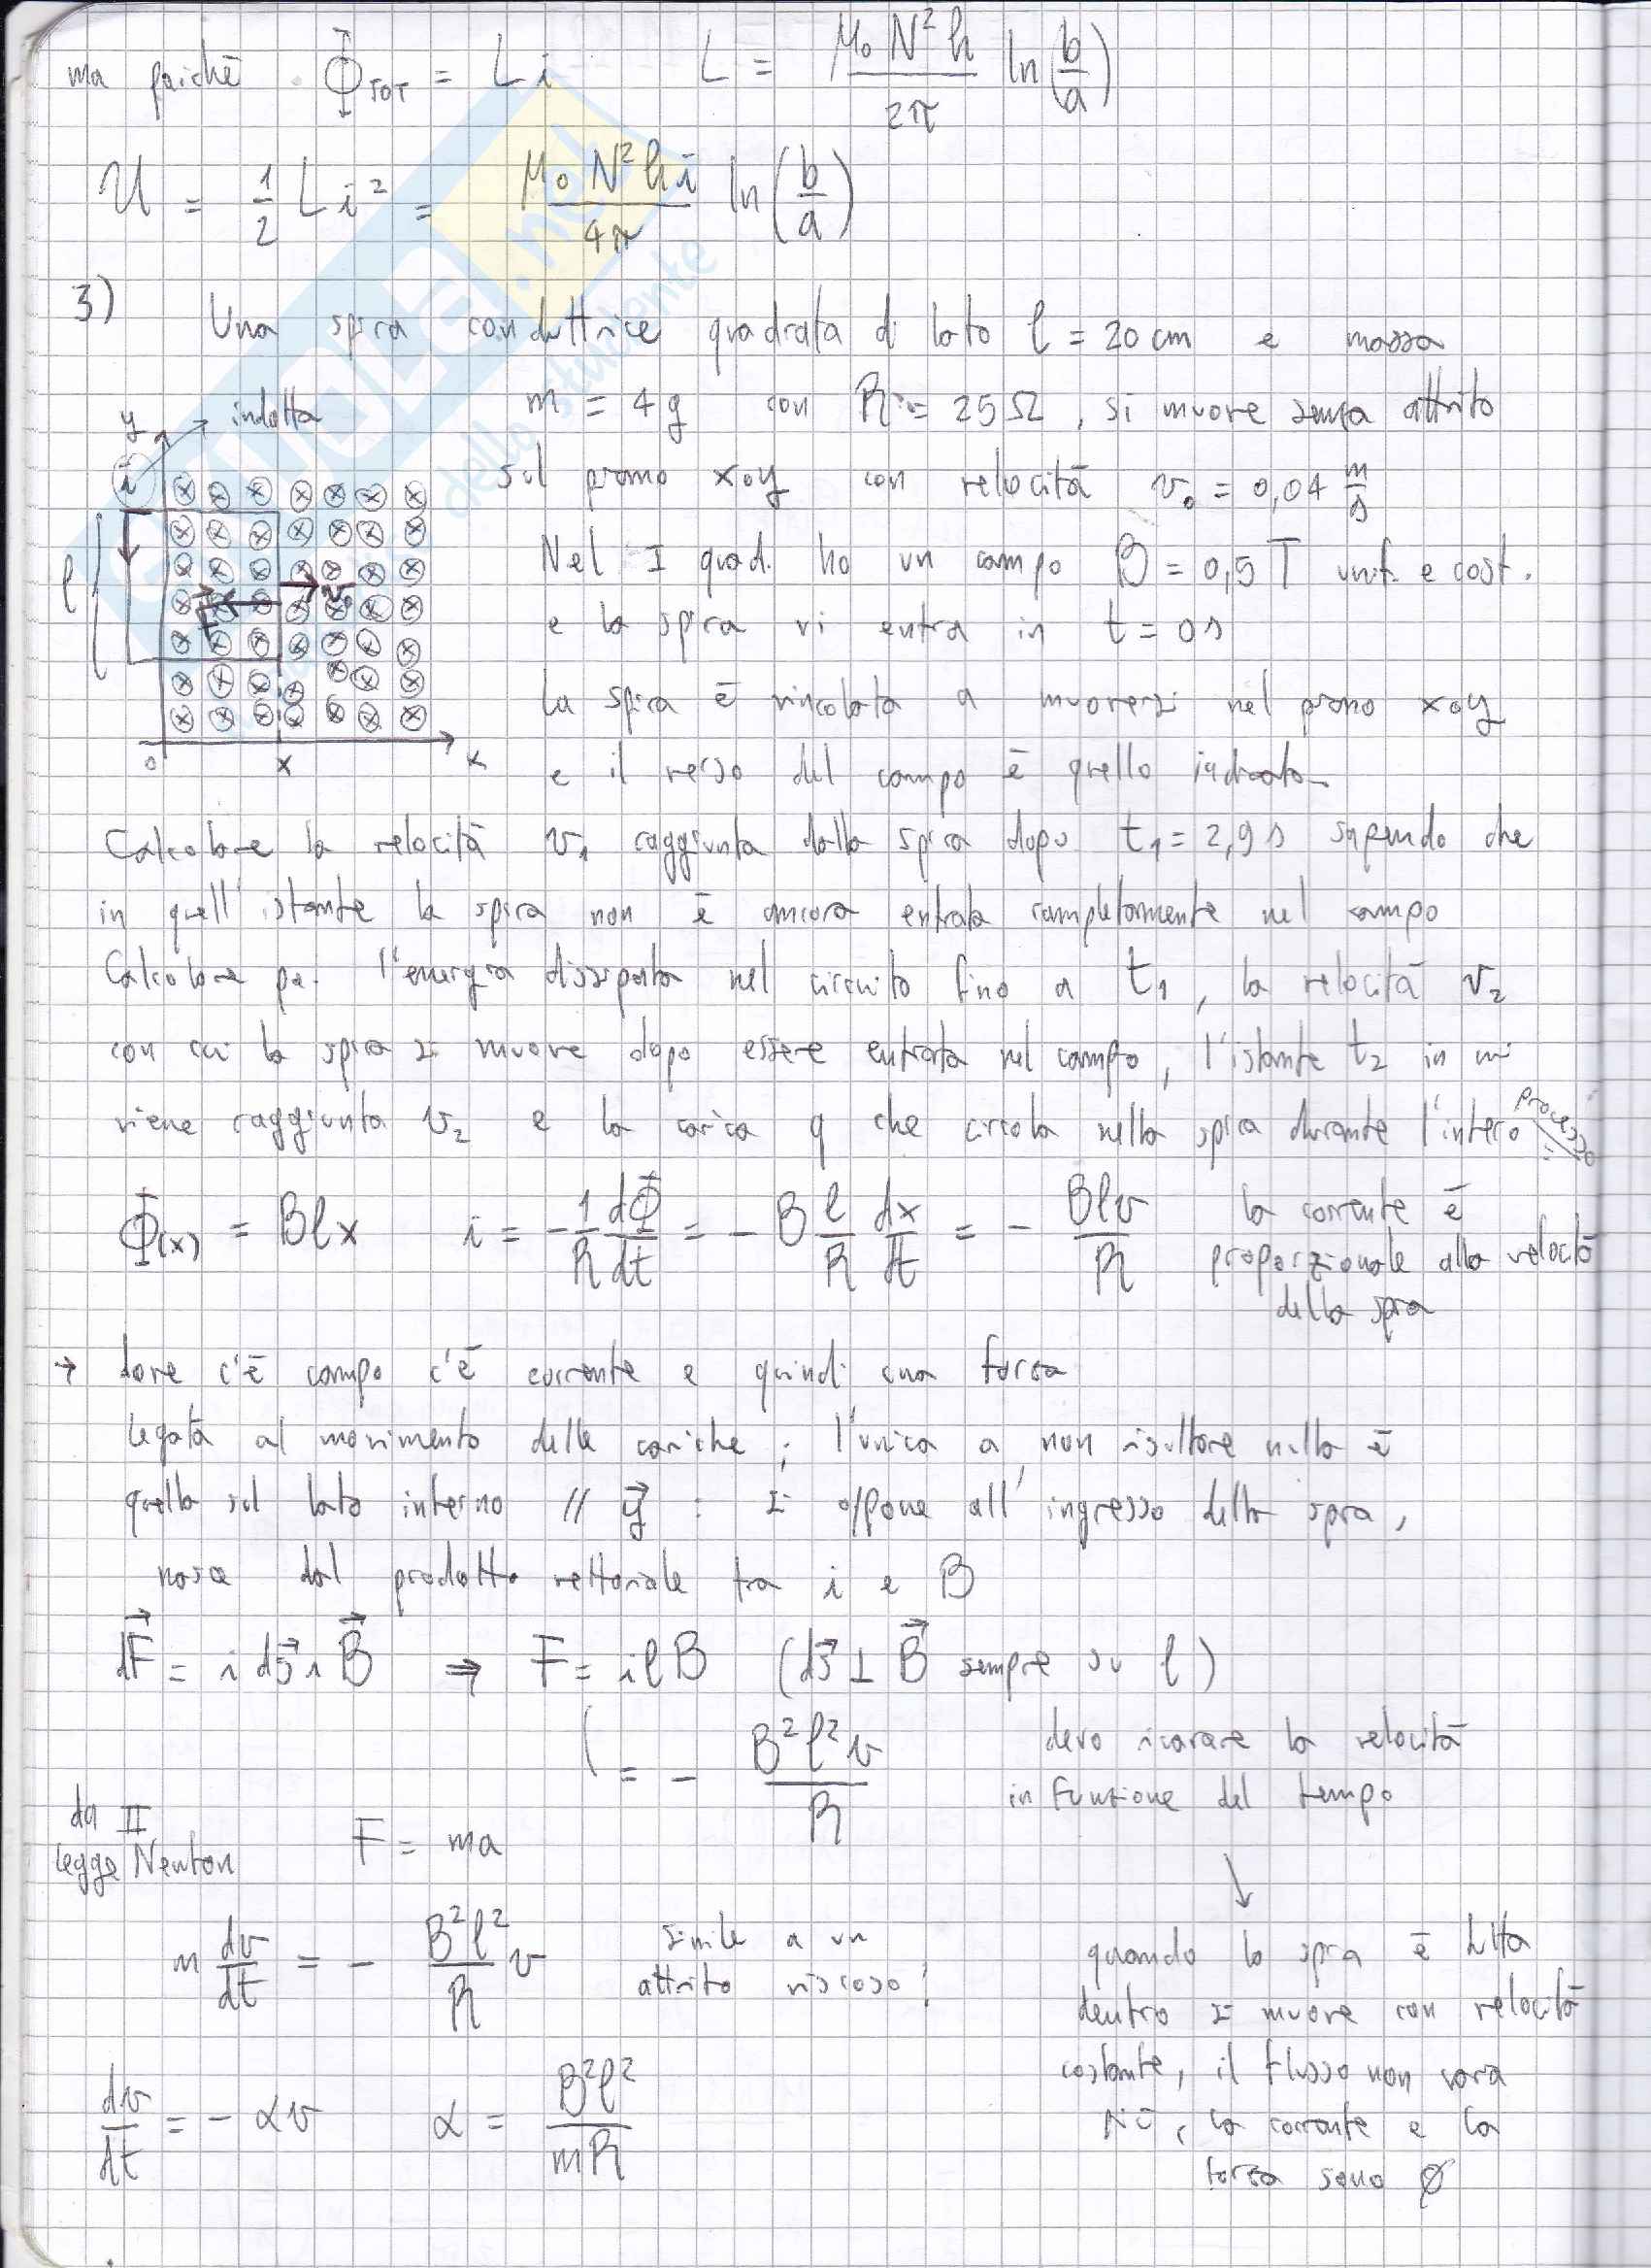 ma poiché Φ_TOT = L i L = μ₀ N² h / 2π ln(b/a)
U = 1/2 L i² = μ₀ N² h i / 4π ln(b/a)
3) Una spira conduttrice quadrata di lato l = 20 cm e massa
m = 4 g con R = 25 Ω, si muove senza attrito
sul piano xoy con velocità v₀ = 0,04 m/s
Nel I quad. ho un campo B = 0,5 T unif. e cost.
e la spira vi entra in t = 0 s
la spira è vincolata a muoversi nel piano xoy
e il verso del campo è quello indicato
y
i → indotta
l
F
v₀
0 x x
Calcolare la velocità v₁ raggiunta dalla spira dopo t₁ = 2,9 s sapendo che
in quell'istante la spira non è ancora entrata completamente nel campo
Calcolare poi l'energia dissipata nel circuito fino a t₁, la velocità v₂
con cui la spira si muove dopo essere entrata nel campo, l'istante t₂ in cui
viene raggiunta v₂ e la carica q che circola nella spira durante l'intero processo
Φ(x) = Blx i = - 1/R dΦ/dt = - B l/R dx/dt = - Blv/R la corrente è
proporzionale alla velocità
della spira
→ dove c'è campo c'è corrente e quindi una forza
legata al movimento delle cariche; l'unica a non risultare nulla è
quella sul lato interno // y⃗ : si oppone all'ingresso della spira,
nasce dal prodotto vettoriale tra i e B
dF⃗ = i ds⃗ ∧ B⃗ ⇒ F = i l B (ds⃗ ⊥ B⃗ sempre su l)
= - B² l² v / R devo ricavare la velocità
in funzione del tempo
da II
legge Newton F = ma
↓
m dv/dt = - B² l² / R v simile a un
attrito viscoso!
quando la spira è tutta
dentro si muove con velocità
costante, il flusso non varia
più, la corrente e la
forza sono ∅
dv/dt = - αv α = B² l² / mR